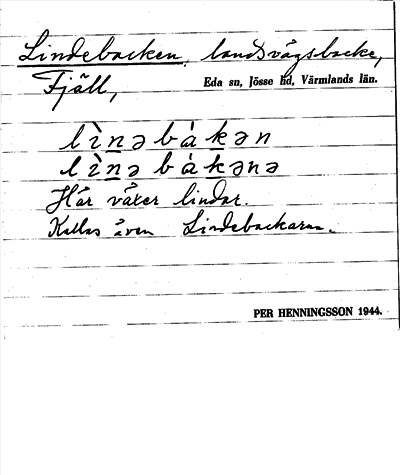 Lindebacken, landsvägsbacke,
Fjäll,
Eda sn, Jösse hd, Värmlands län.
lìnəbàkən
lìnəbàkənə
Här växer lindar.
Kallas även Lindebackarna.
PER HENNINGSSON 1944.